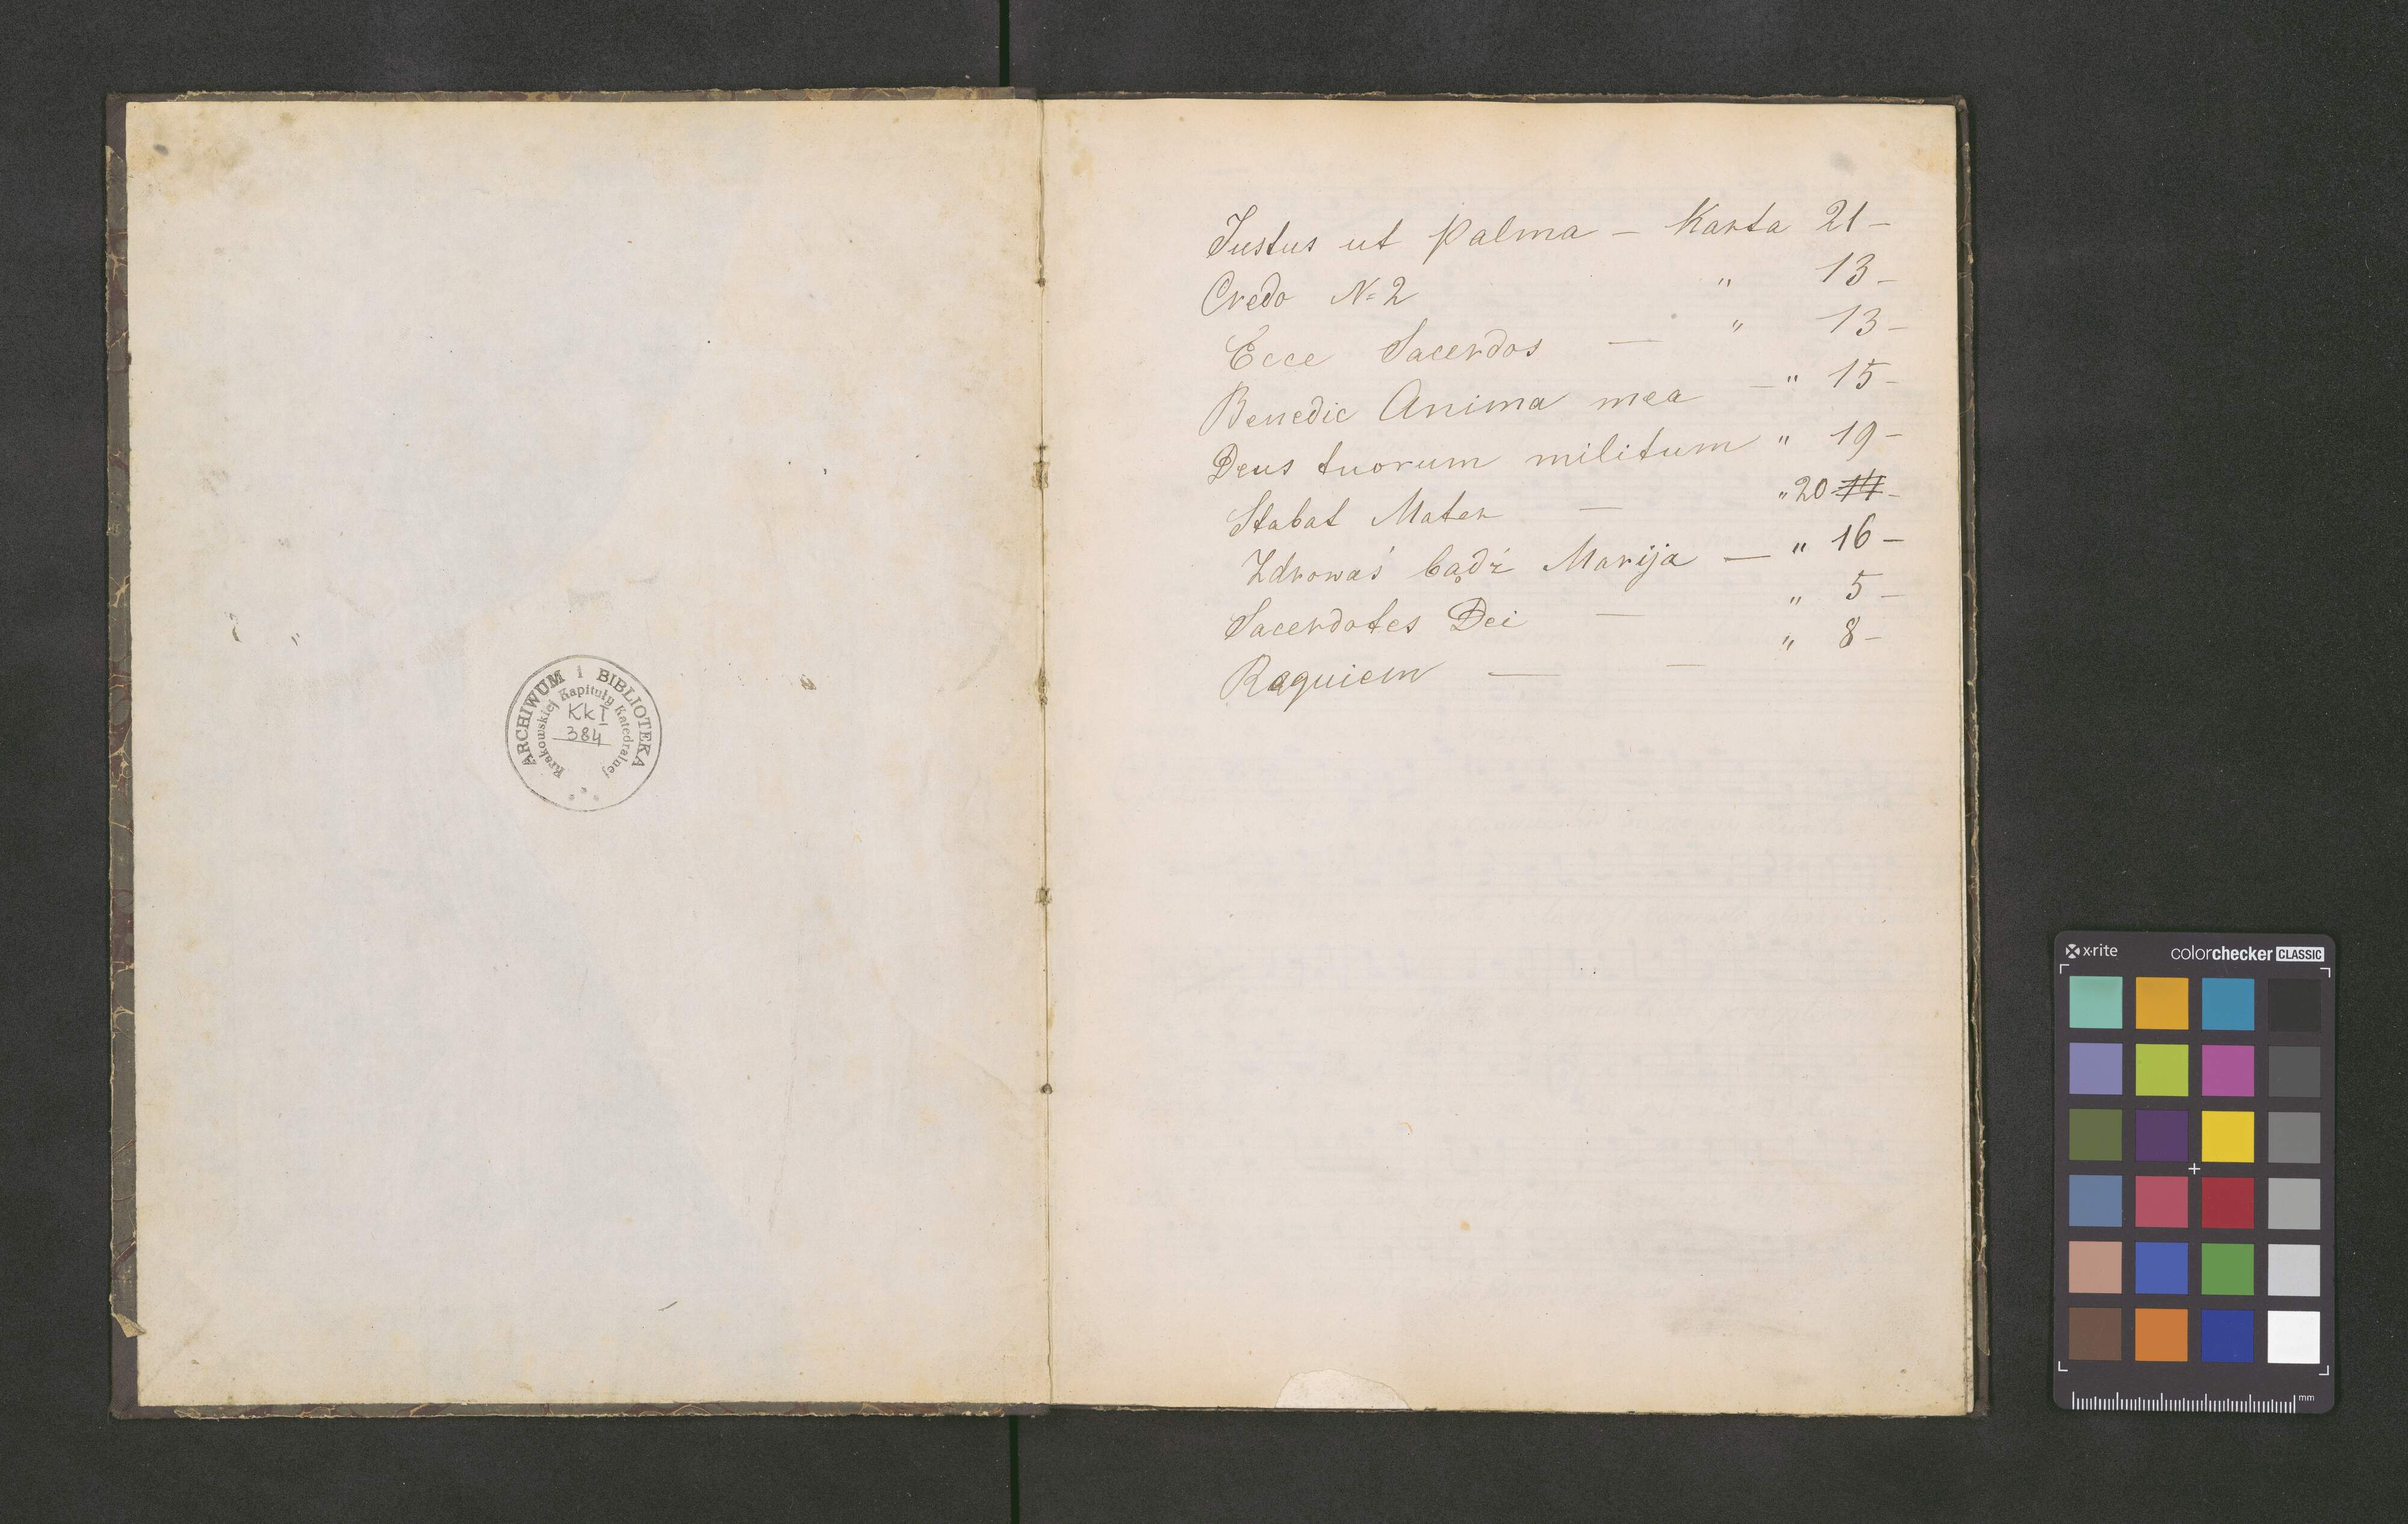 ARCHIWUM i BIBLIOTEKA
Krakowskiej Kapituły Katedralnej
KkI
384
Justus ut Palma – Karta 21 –
Credo N=2 " 13 –
Ecce Sacerdos — " 13 –
Benedic Anima mea — " 15 –
Deus tuorum militum " 19 –
Stabat Mater — " 20 ~~14~~ –
Zdrowaś bądź Marija — " 16 –
Sacerdotes Dei — " 5 –
Requiem — — " 8 –
x-rite colorchecker CLASSIC
mm